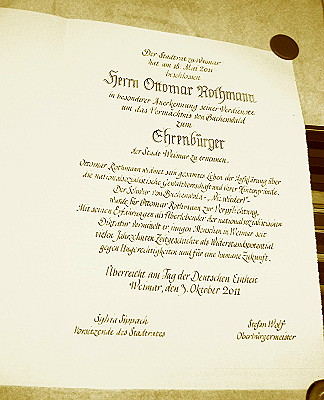 Der Stadtrat zu Weimar
hat am 18. Mai 2011
beschlossen
Herrn Ottomar Rothmann
in besonderer Anerkennung seiner Verdienste
um das Vermächtnis von Buchenwald
zum
Ehrenbürger
der Stadt Weimar zu ernennen.
Ottomar Rothmann widmet sein gesamtes Leben der Aufklärung über
die nationalsozialistische Gewaltherrschaft und ihrer Hintergründe.
Der Schwur von Buchenwald - „Nie wieder!" -
wurde für Ottomar Rothmann zur Verpflichtung.
Mit seinen Erfahrungen als Überlebender der nationalsozialistischen
Diktatur vermittelt er jungen Menschen in Weimar seit
vielen Jahrzehnten Zeitgeschichte als Widerstandspotential
gegen Ungerechtigkeiten und für eine humane Zukunft.
Überreicht am Tag der Deutschen Einheit
Weimar, den 3. Oktober 2011
Sylvia Stefan Wolf
Vorsitzende des Stadtrates Oberbürgermeister